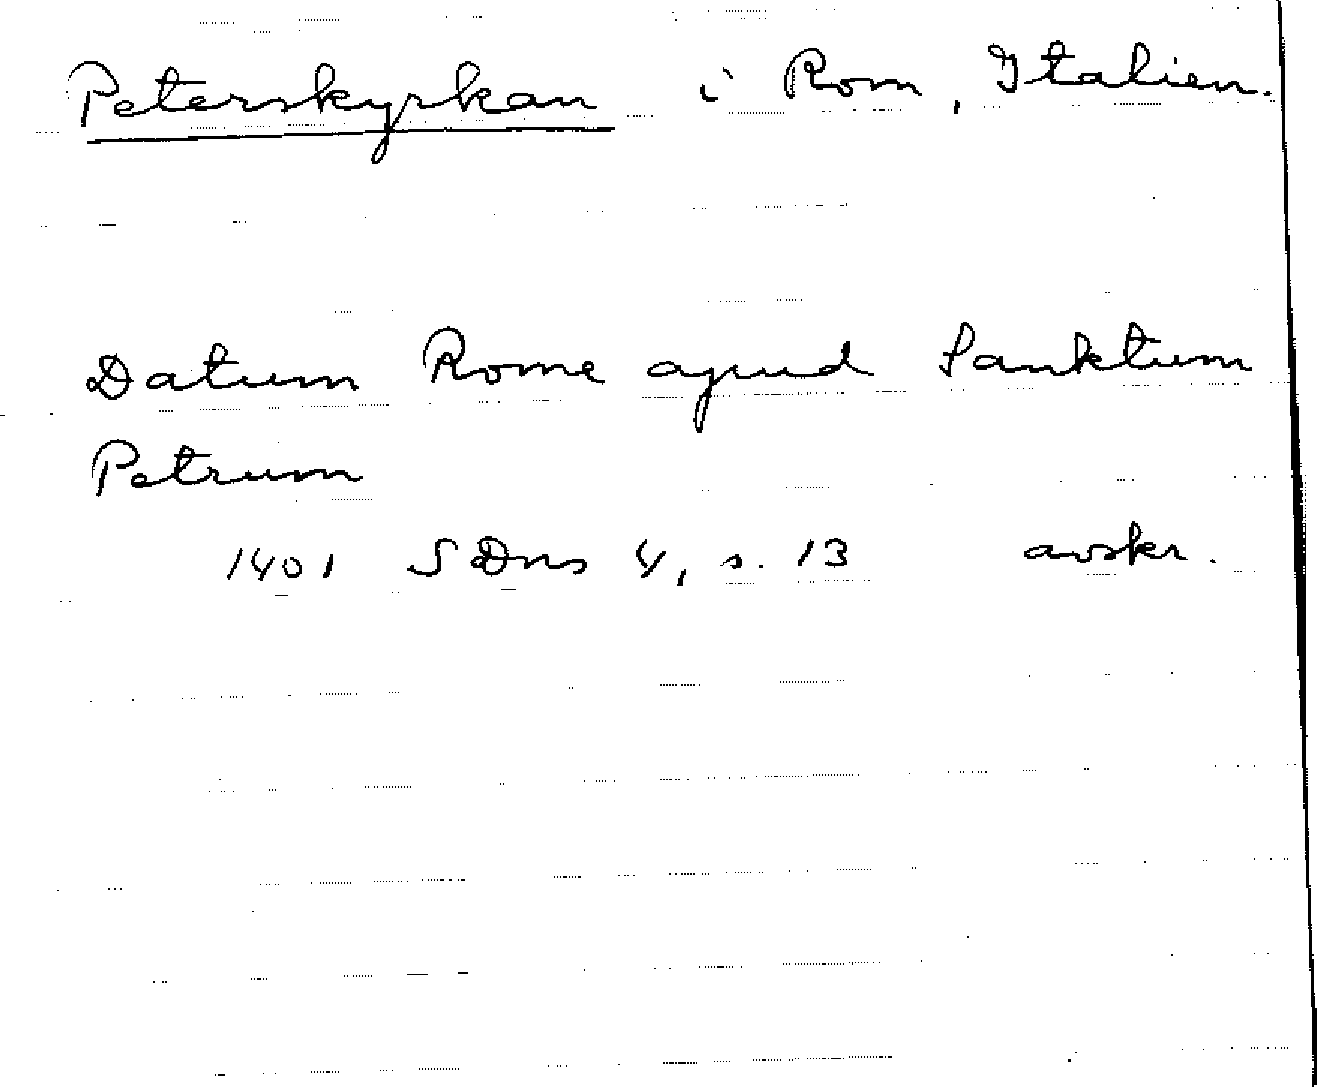 Peterskyrkan i Rom, Italien.
Datum Rome apud Sanktum
Petrum
1401 SDns 4, s. 13 avskr.